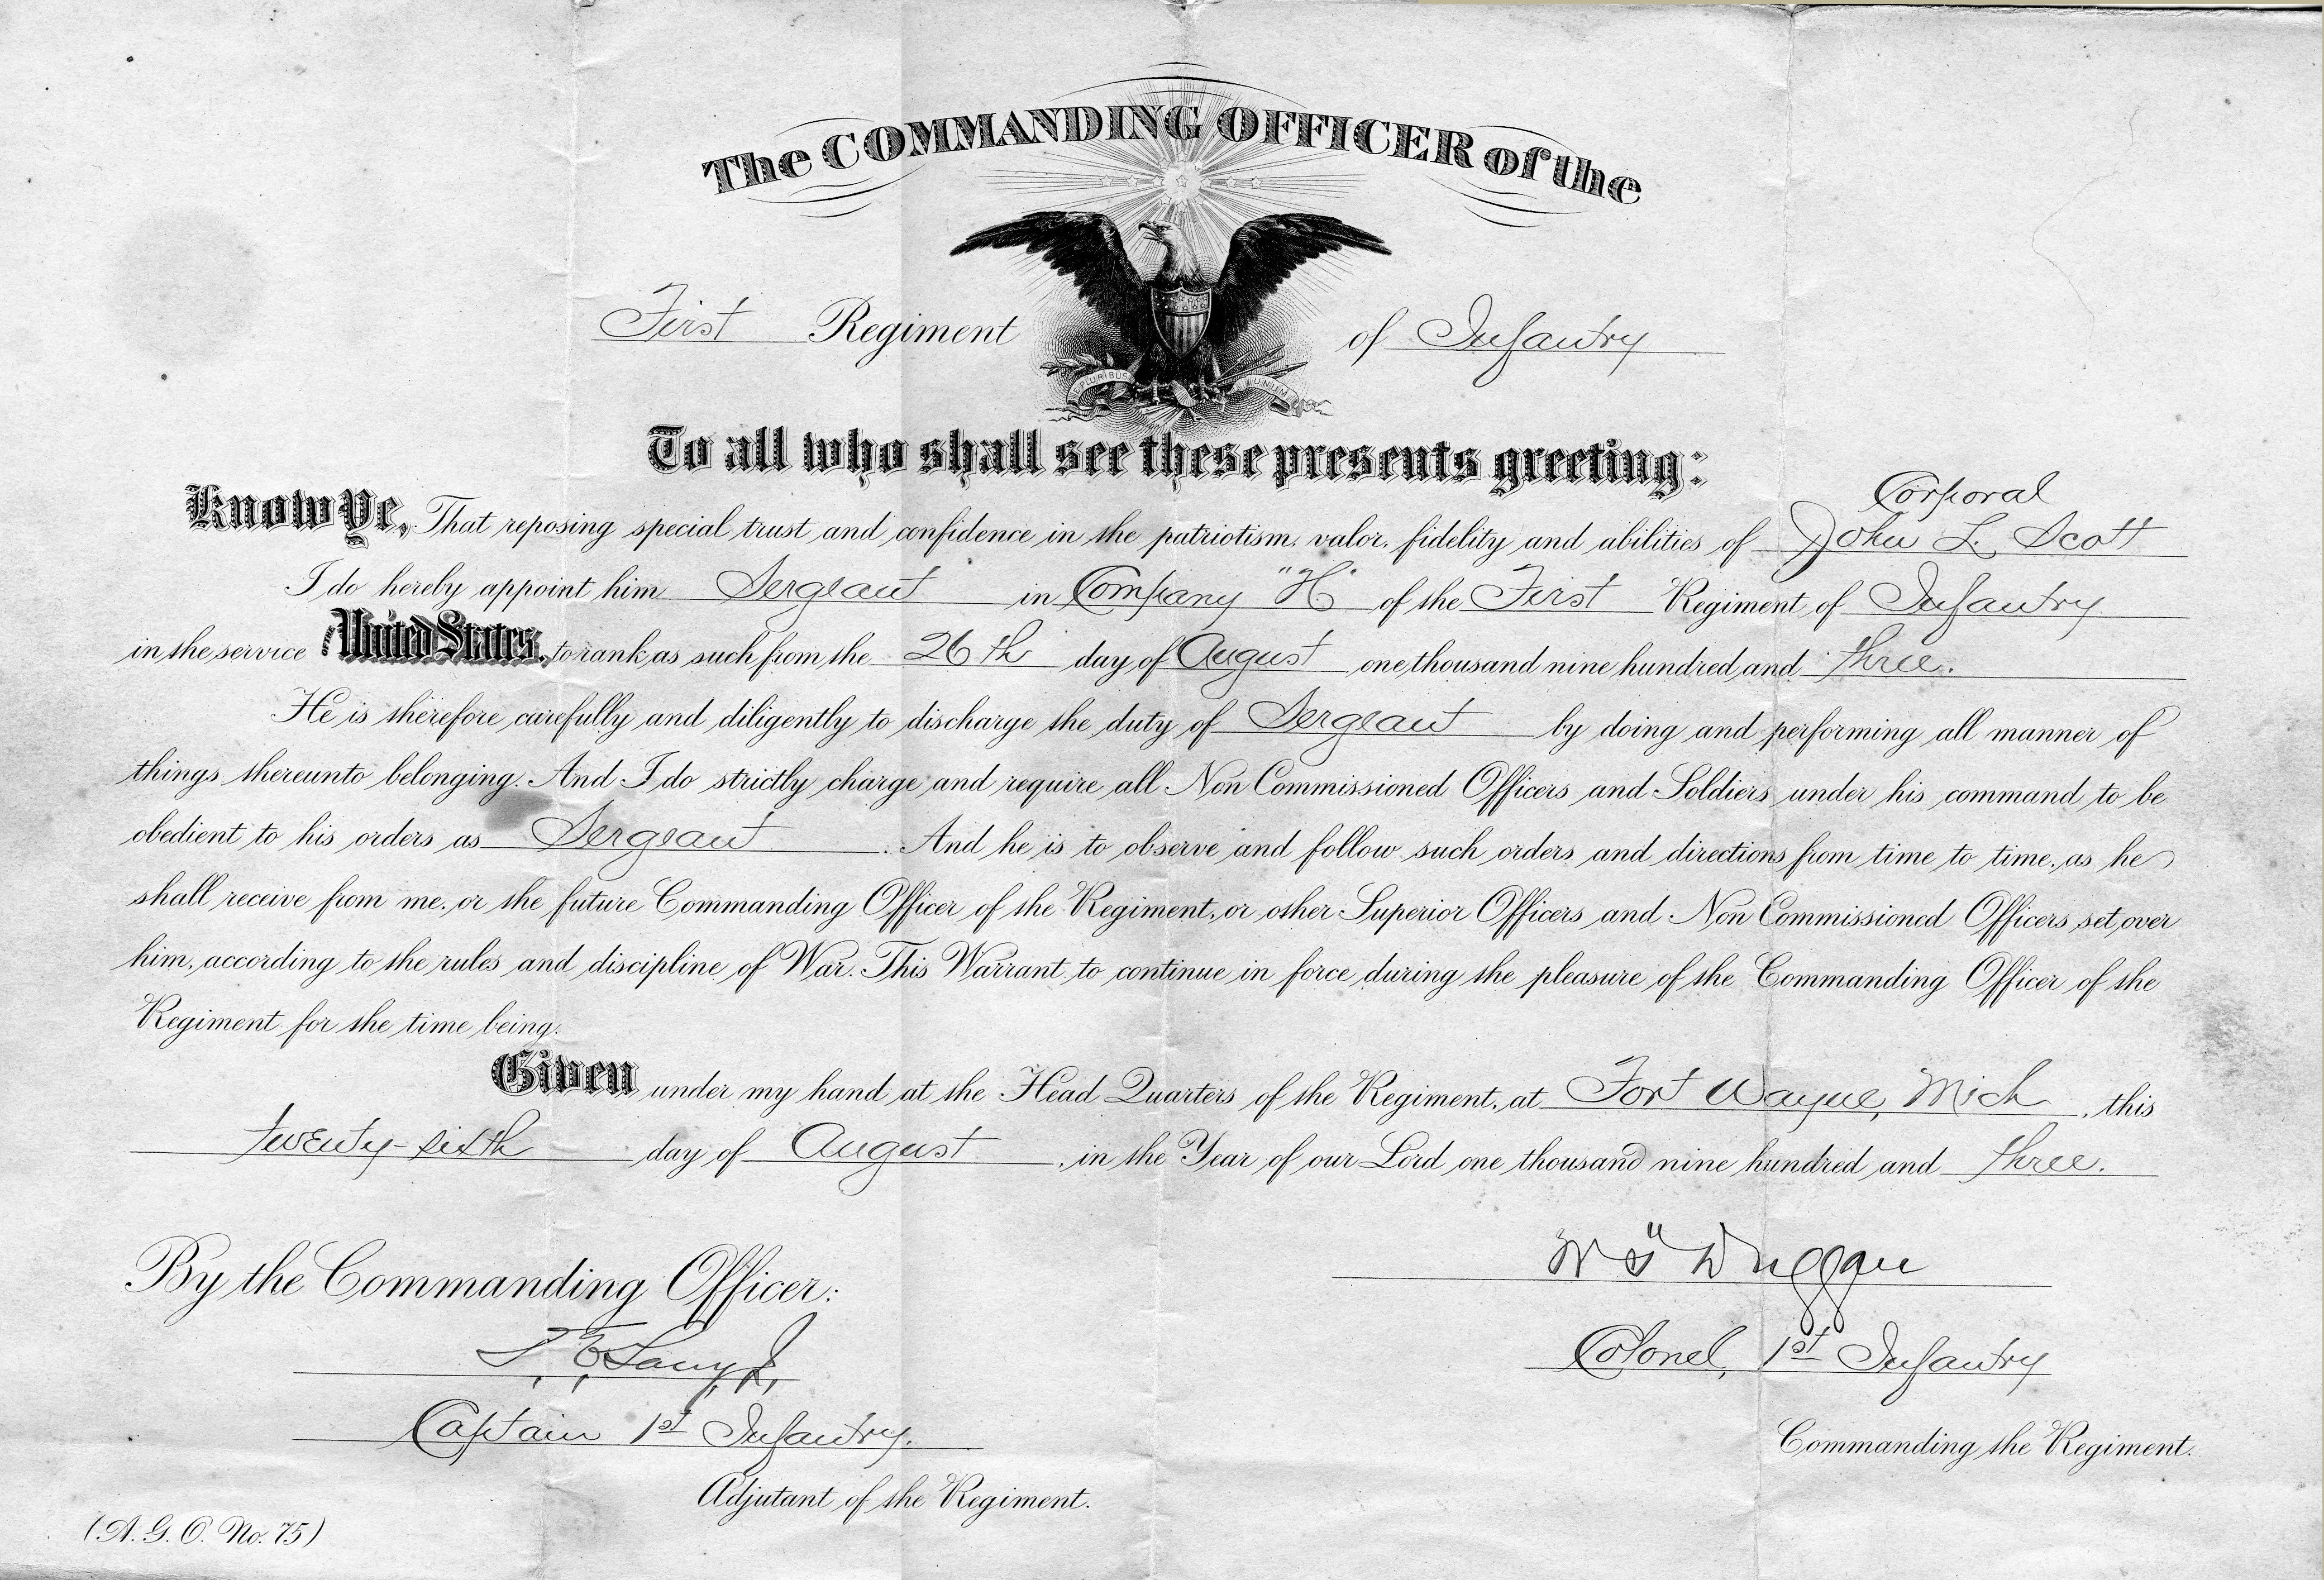 The COMMANDING OFFICER of the
First Regiment of Infantry
E PLURIBUS UNUM
To all who shall see these presents greeting:
Corporal
Know Ye, That reposing special trust and confidence in the patriotism, valor, fidelity and abilities of John L. Scott
I do hereby appoint him Sergeant in Company "H" of the First Regiment of Infantry
in the service of the United States, to rank as such from the 26th day of August one thousand nine hundred and three.
He is therefore carefully and diligently to discharge the duty of Sergeant by doing and performing all manner of
things thereunto belonging. And I do strictly charge and require all Non Commissioned Officers and Soldiers under his command to be
obedient to his orders as Sergeant. And he is to observe and follow such orders and directions from time to time, as he
shall receive from me, or the future Commanding Officer of the Regiment, or other Superior Officers and Non Commissioned Officers set over
him, according to the rules and discipline of War. This Warrant to continue in force during the pleasure of the Commanding Officer of the
Regiment for the time being.
Given under my hand at the Head Quarters of the Regiment, at Fort Wayne, Mich, this
twenty-sixth day of August, in the Year of our Lord one thousand nine hundred and three.
W Duggan
By the Commanding Officer:
Colonel, 1st Infantry
Captain 1st Infantry.
Commanding the Regiment.
Adjutant of the Regiment.
(A. G. O. No. 75)